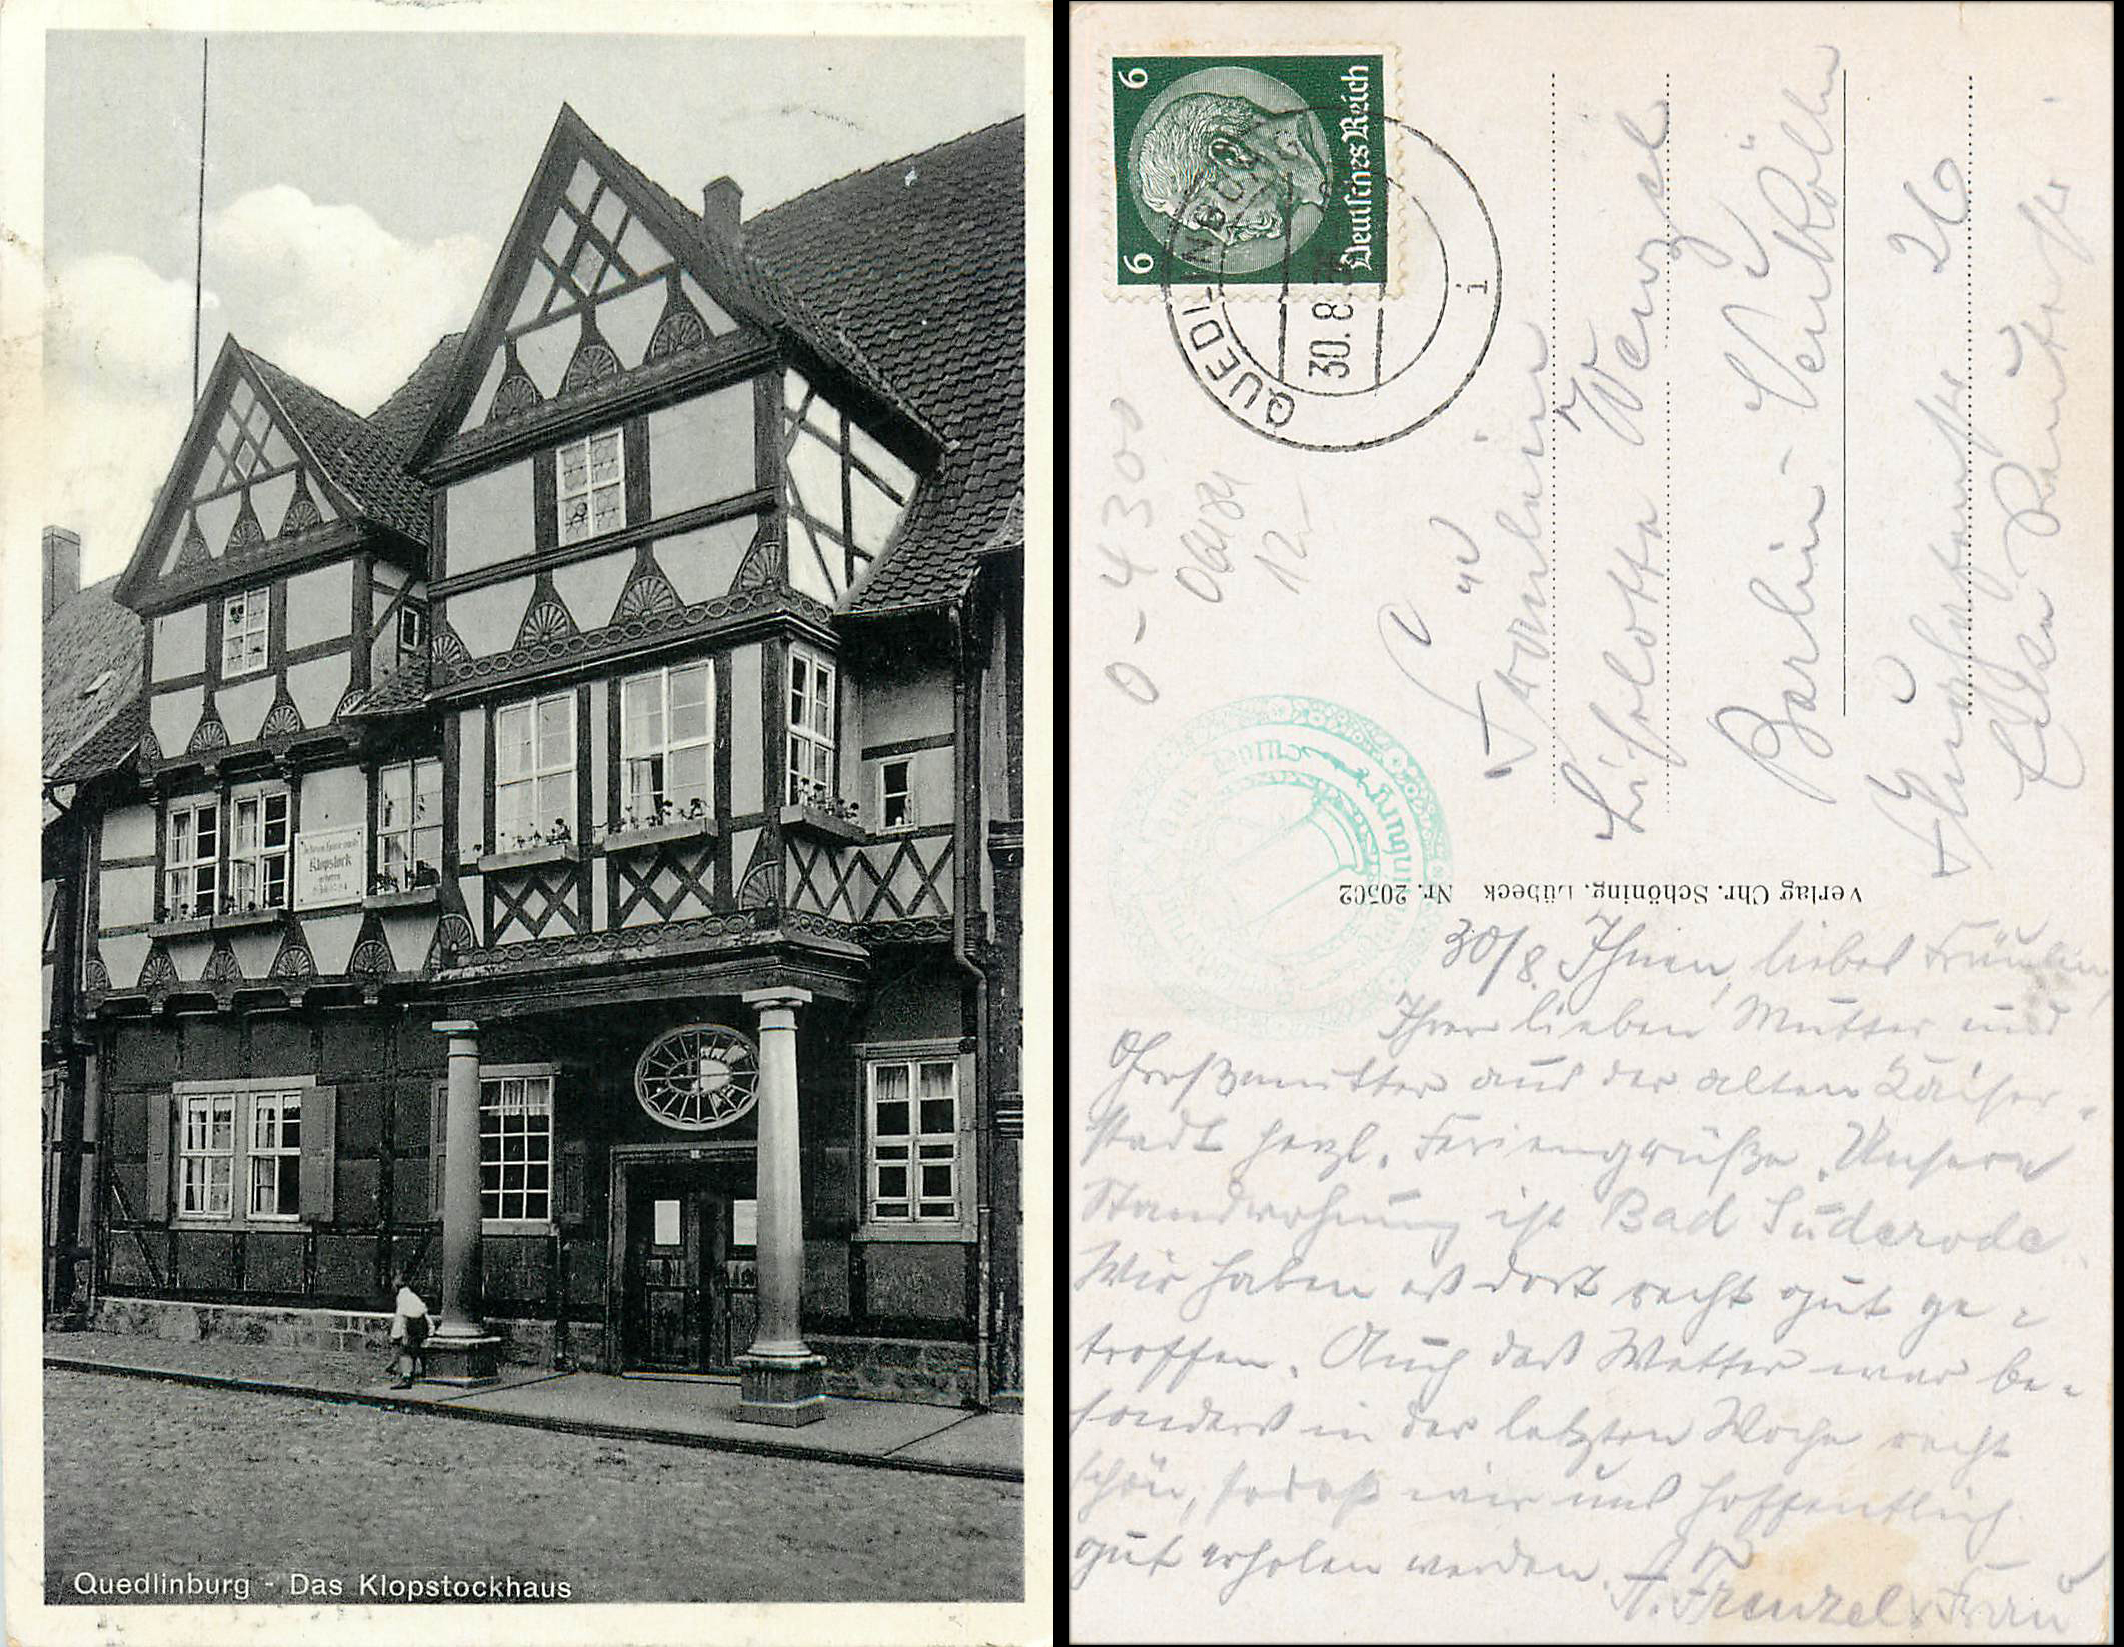 In diesem Hause wurde
Klopstock
geboren
Quedlinburg - Das Klopstockhaus
Deutsches Reich
6
6
QUEDLINBURG
30.8.
i
0-4300
12.-
Fräulein
Liselotte Wenzel
Berlin-Neukölln
26
Verlag Chr. Schöning, Lübeck Nr. 20502
30/8. Ihnen, liebes Fräulein,
Ihrer lieben Mutter und
Großmutter aus der alten Kaiser-
stadt herzl. Feriengrüße. Unsere
Standwohnung ist Bad Suderode.
Wir haben es dort recht gut ge-
troffen. Auch das Wetter war be-
sonders in der letzten Woche recht
schön, sodaß wir uns hoffentlich
gut erholen werden.
A. Frenzel & Frau